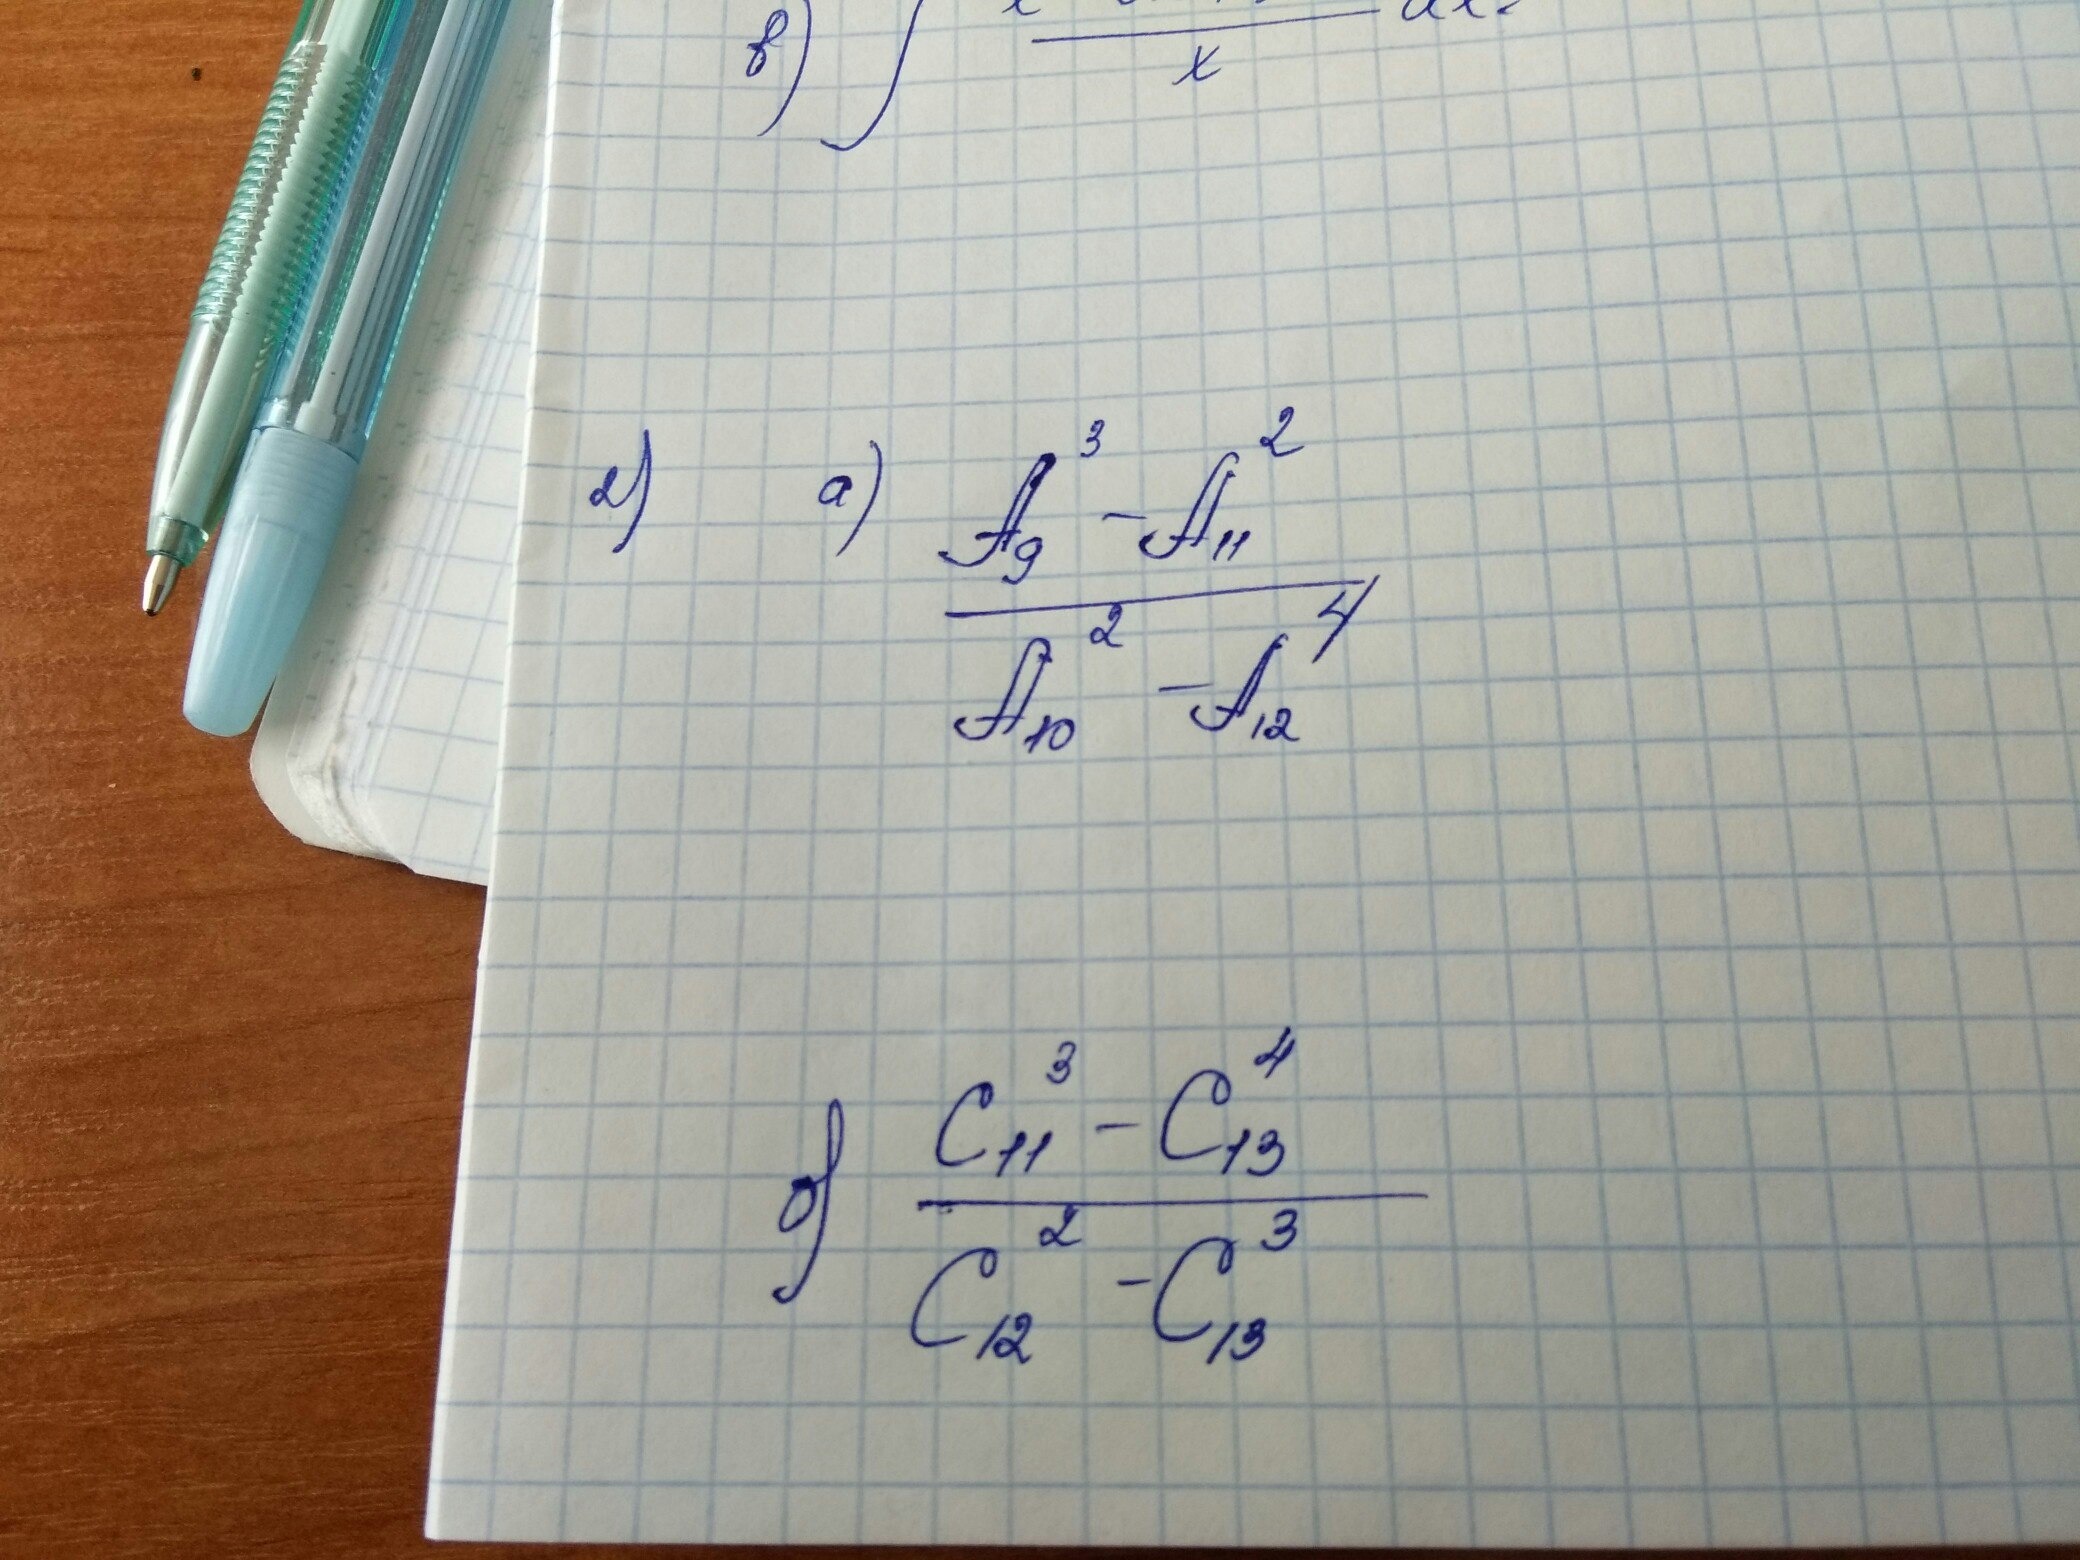 в) ∫ / x dx
2) а) A₉³ - A₁₁² / A₁₀² - A₁₂⁴
б) C₁₁³ - C₁₃⁴ / C₁₂² - C₁₃³